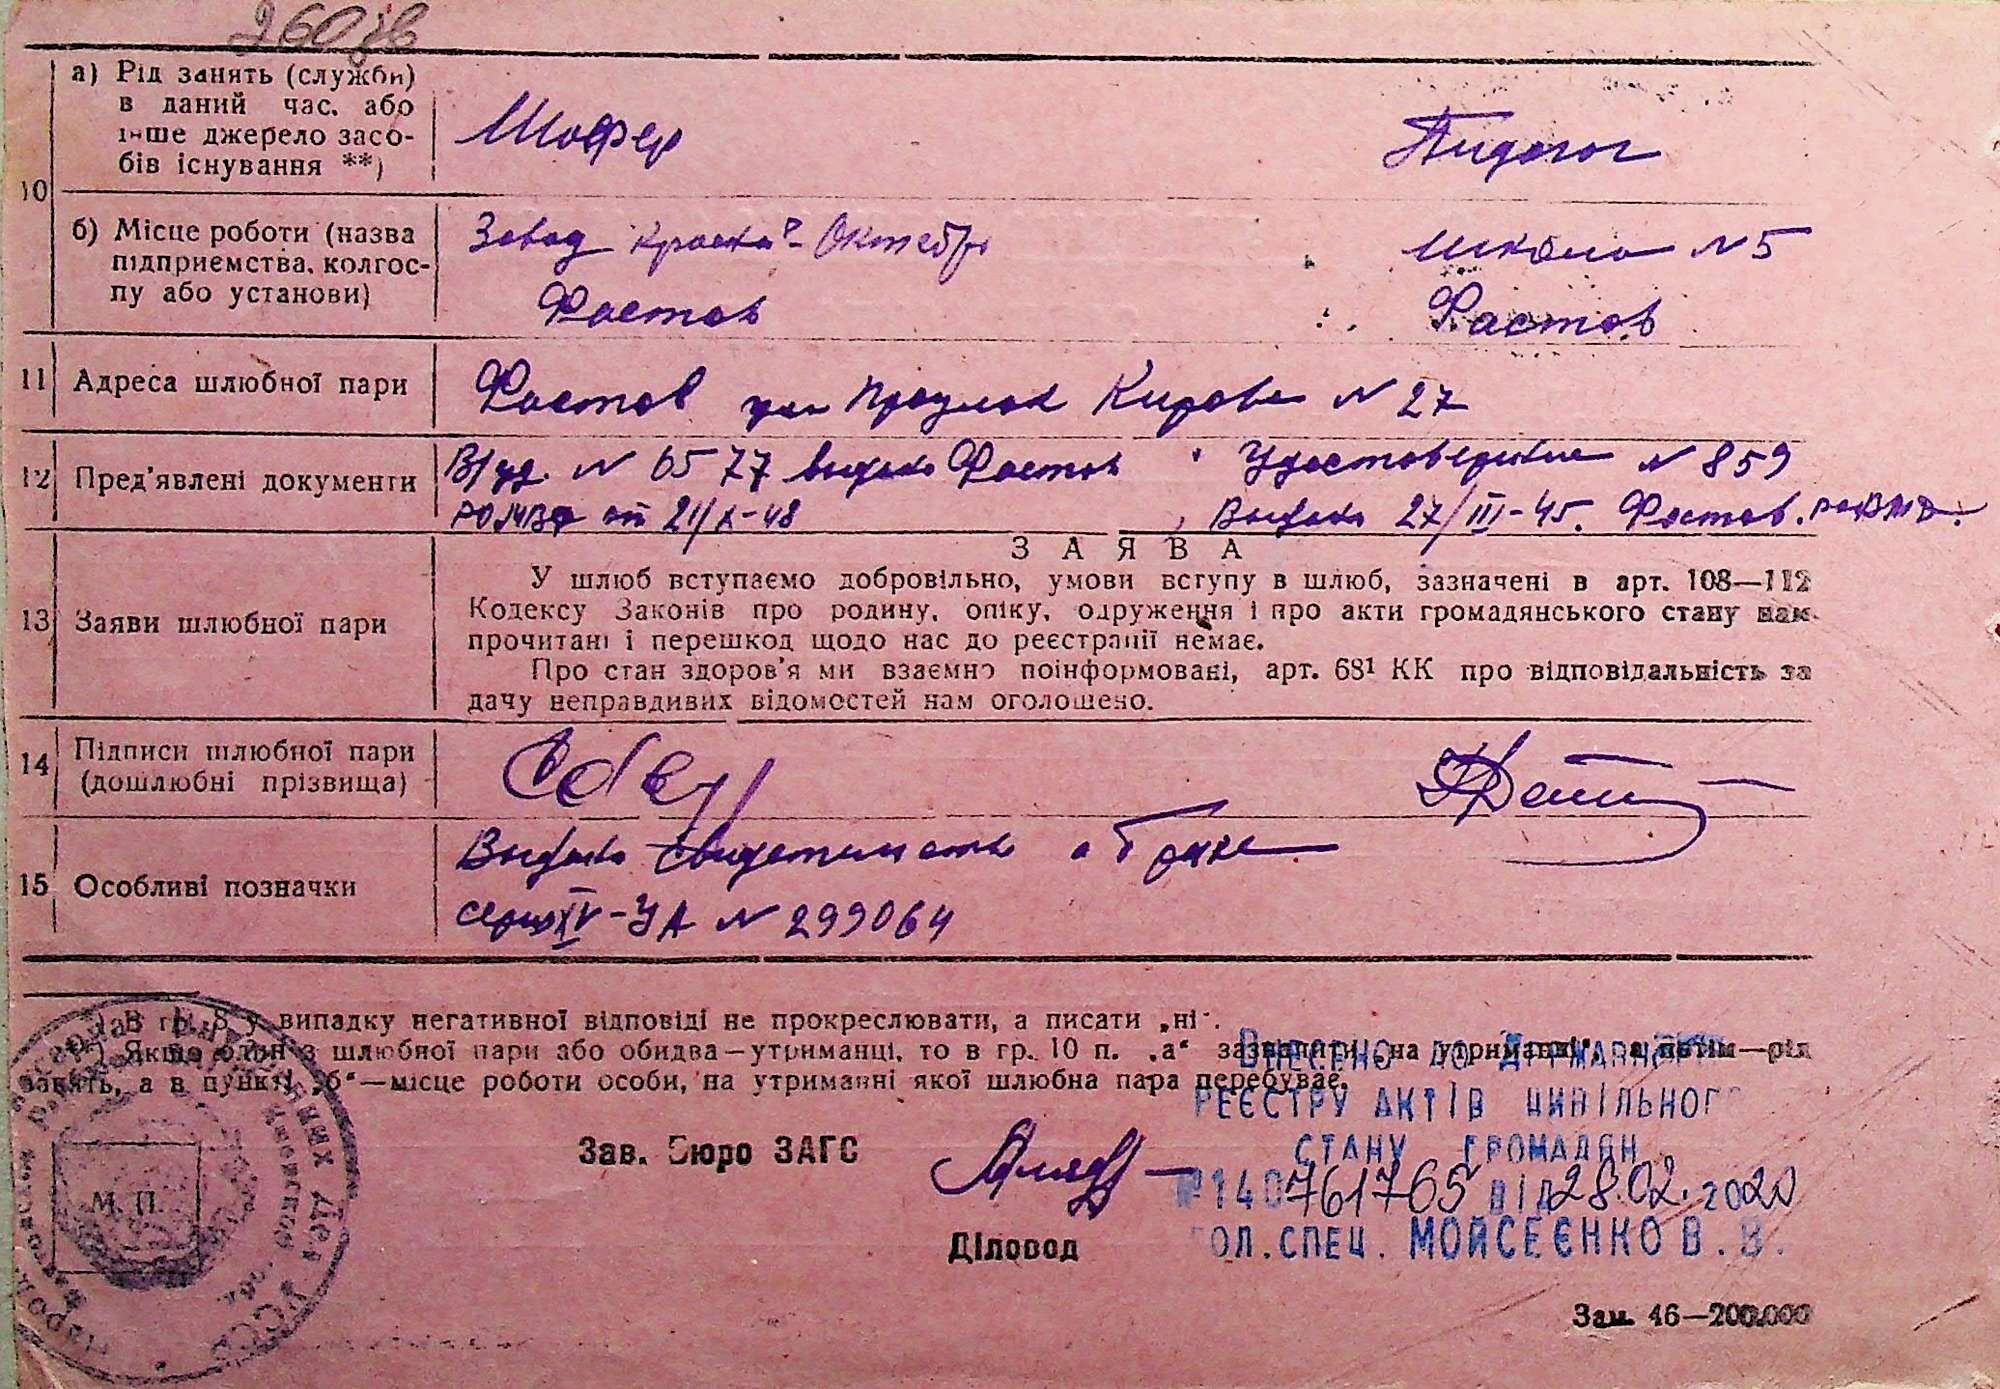 260
а) Рід занять (служби) в даний час, або інше джерело засобів існування **)
Шофер
Пидогог
10
б) Місце роботи (назва підприємства, колгоспу або установи)
Завод Октебрь
Фастов
Школа N 5
Фастов
11 Адреса шлюбної пари
Фастов Кирова N 27
12 Пред'явлені документи
В/уд. N 6577 выдано Фастов
РОМВД от 21/X-48
Удостоверение N 859
Выдано 27/III-45. Фастов.
З А Я В А
13 Заяви шлюбної пари
У шлюб вступаємо добровільно, умови вступу в шлюб, зазначені в арт. 108—112
Кодексу Законів про родину, опіку, одруження і про акти громадянського стану нам
прочитані і перешкод щодо нас до реєстрації немає.
Про стан здоров'я ми взаємно поінформовані, арт. 68¹ КК про відповідальність за
дачу неправдивих відомостей нам оголошено.
14 Підписи шлюбної пари
(дошлюбні прізвища)
15 Особливі позначки
Выдано свидетельство о браке
серия IV-УА N 299064
*) В гр. 8 у випадку негативної відповіді не прокреслювати, а писати „ні“.
**) Якщо один з шлюбної пари або обидва—утриманці, то в гр. 10 п. „а“ зазначити „на утриманні“, а потім—рід
занять, а в пункті „б“—місце роботи особи, на утриманні якої шлюбна пара перебуває.
Внесено до Державного
реєстру актів цивільного
стану громадян
№140761765 від 28.02.2020
гол.спец. Мойсеєнко В.В.
Зав. Бюро ЗАГС
Діловод
М. П.
Зам. 46—200.000